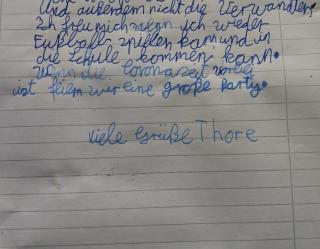 Und außerdem nicht die Verwanden.
Ich freu mich wenn ich wieder
Fußball spielen kann und in
die Schule kommen kann.
Wenn die Coronazeit vorbei
ist feiern wir eine große Party.
Viele Grüße Thore